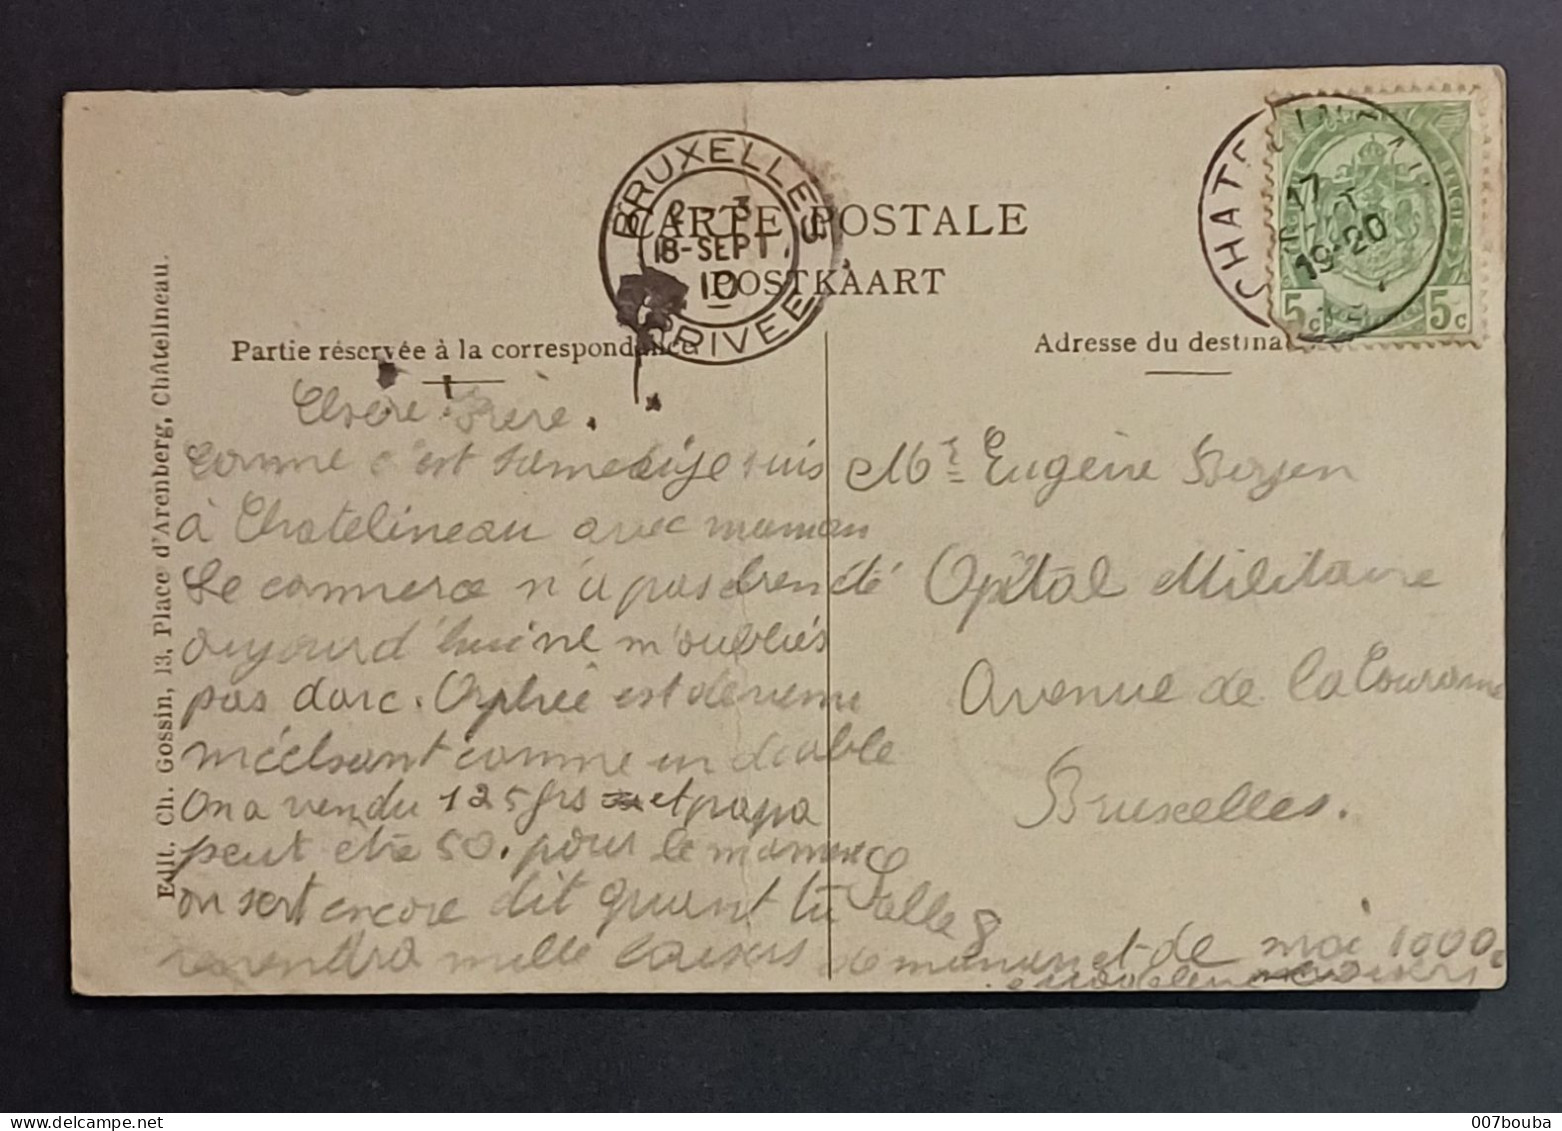 CARTE POSTALE
POSTKAART
BRUXELLES
3
18-SEPT
10
ARRIVEE
CHATELINEAU
17
SEPT
19-20
5c 5c
Partie réservée à la correspondance
Adresse du destinataire
Edit. Ch. Gossin, 13, Place d'Arenberg, Châtelineau.
Chère Frère.
Comme c'est samedi je suis
à Chatelineau avec maman
Le commerce n'a pas bien été
aujourd'hui ne m'oubliés
pas donc. Orphée est devenue
méchant comme un diable
On a vendu 125 frs et papa
peut être 50. pour le moment
on sert encore dit quant tu
reviendra mille baisers de maman et de moi 1000
baisers
Mr Eugène
Opital Militaire
Avenue de la Couronne
Bruxelles.
Salle 8
007bouba